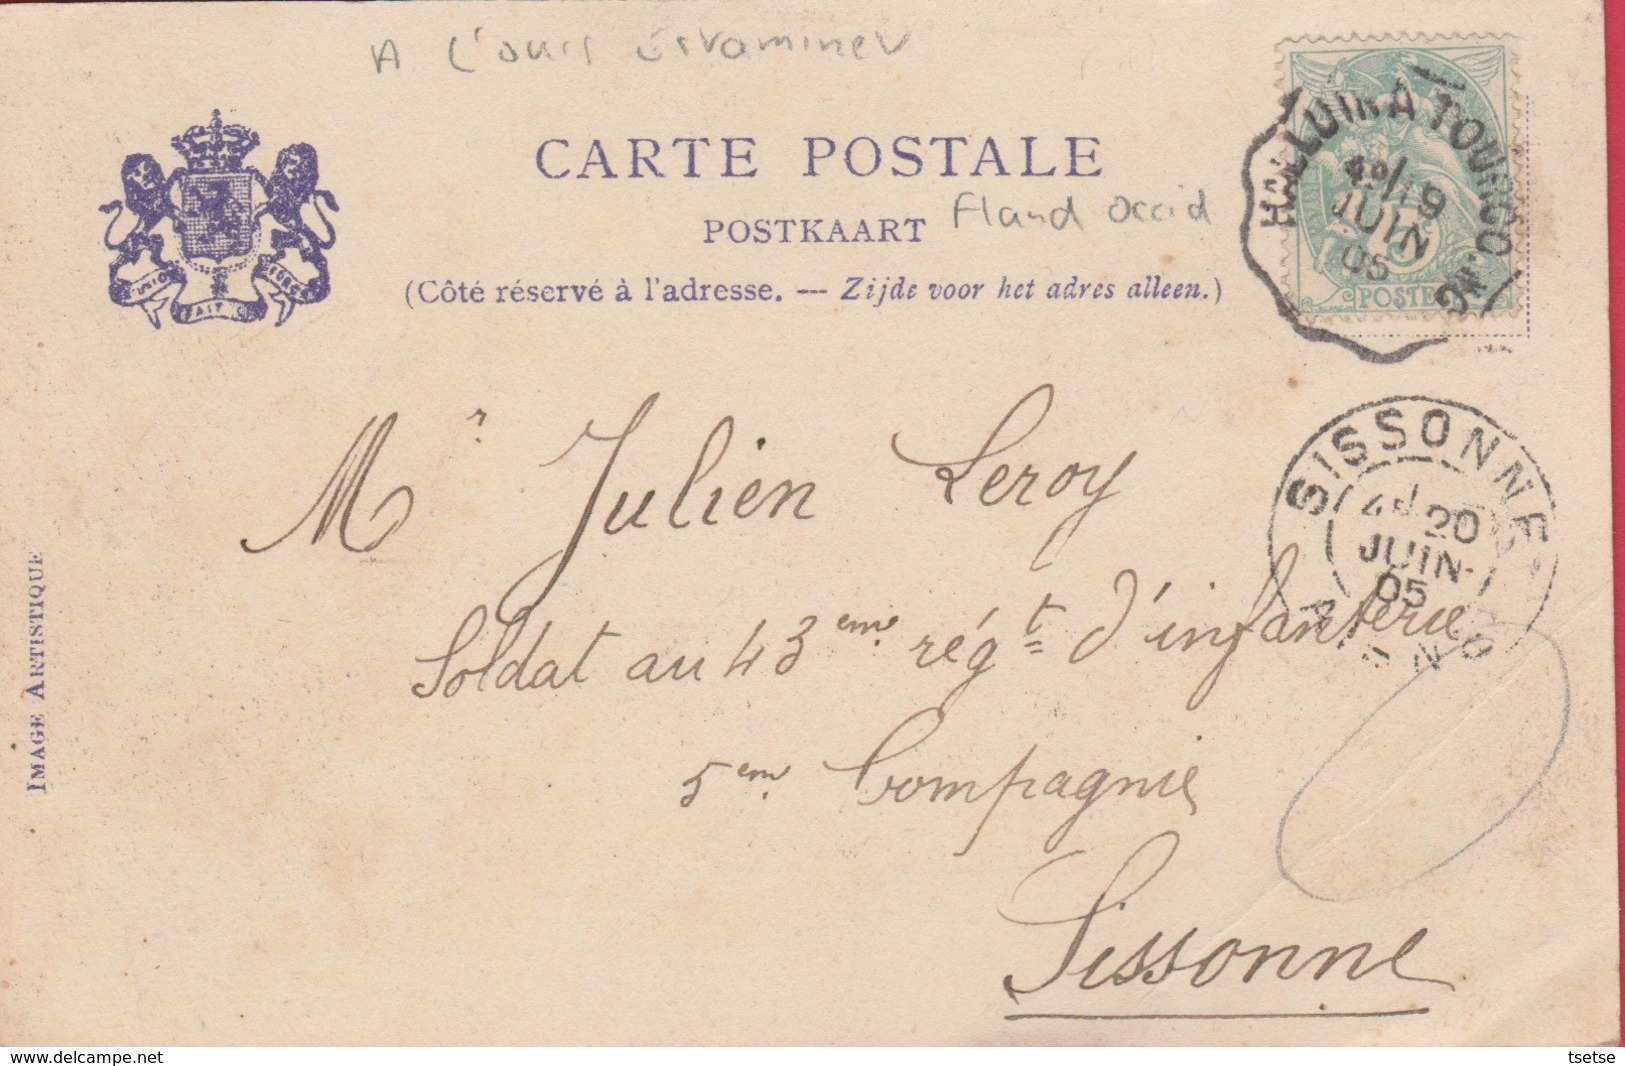 A L'ours Estaminet
CARTE POSTALE
POSTKAART
Fland occid
(Côté réservé à l'adresse. — Zijde voor het adres alleen.)
UNION FAIT FORCE
HALLUIN A TOURCOING
19
JUIN
05
5
POSTE
SISSONNE
20
JUIN
05
AISNE
Mr Julien Leroy
Soldat au 43eme régt d'infanterie
5eme Compagnie
Sissonne
IMAGE ARTISTIQUE
www.delcampe.net
tsetse